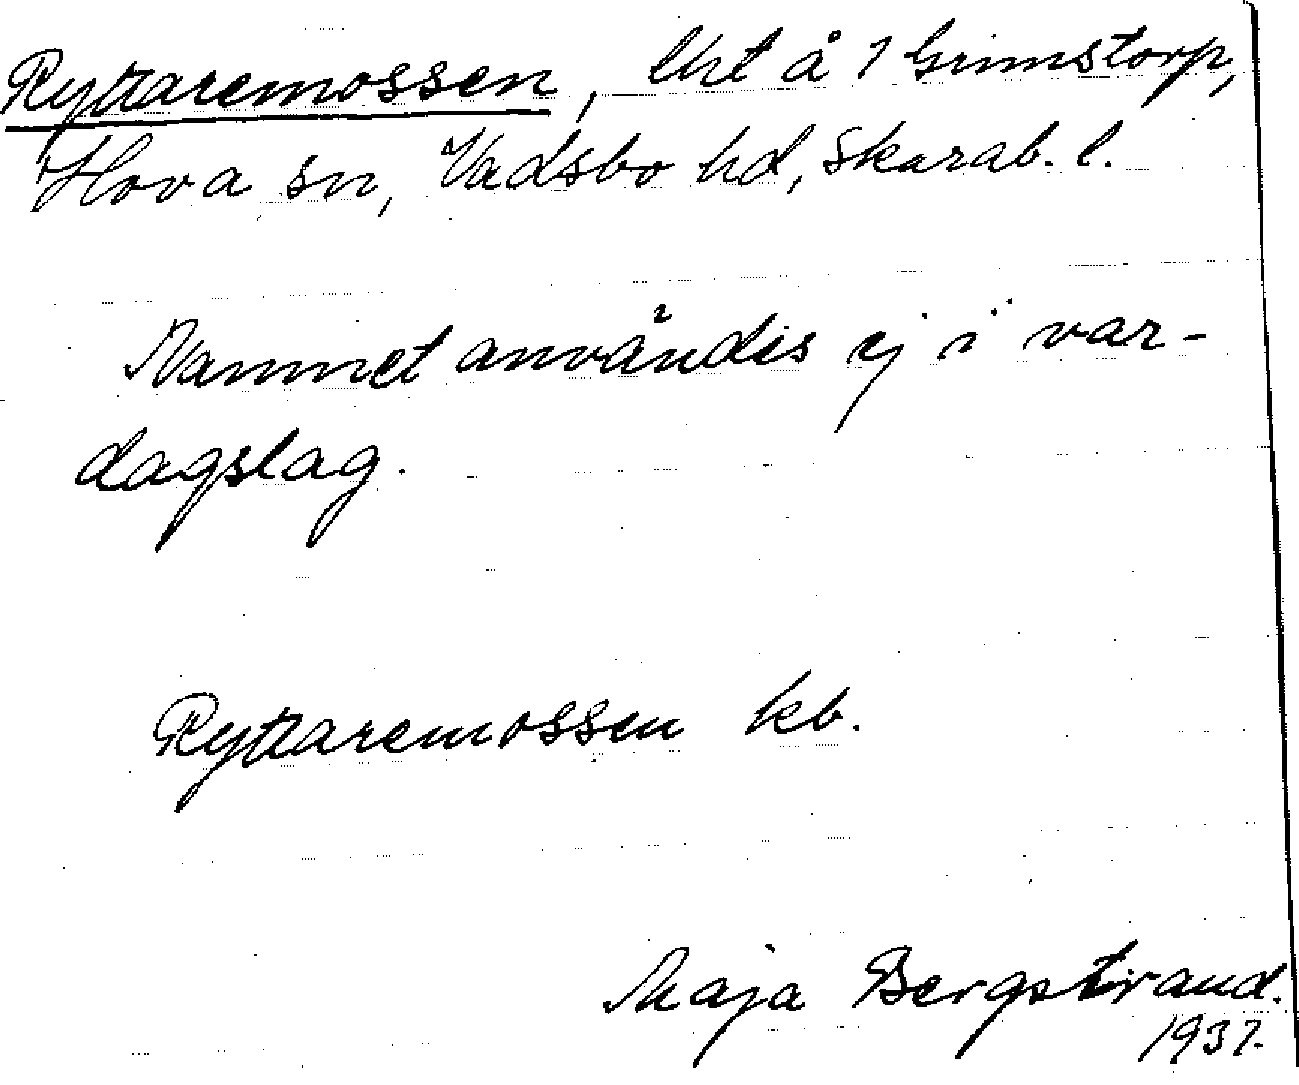 Ryttaremossen, lht å 1 Grimstorp,
Hova sn, Vadsbo hd, Skarab. l.
Namnet användes ej i var-
dagslag.
Ryttaremossen kb.
Maja Bergstrand.
1937.